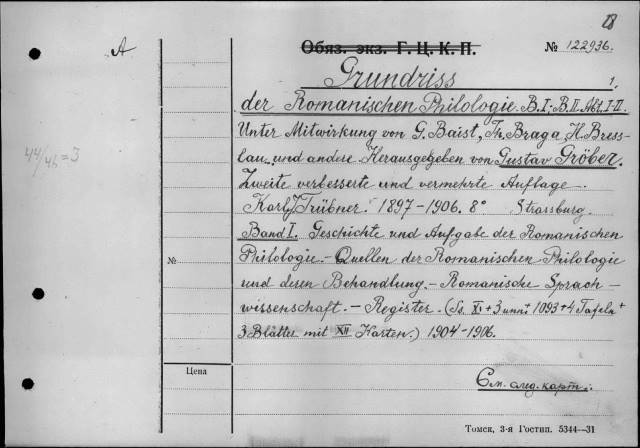 18
A
Обяз. экз. Г. Ц. К. П.
№ 122936.
Grundriss 1.
der Romanischen Philologie. B. I; B. II. Abt. I-II.
Unter Mitwirkung von G. Baist, Th. Braga H. Bress-
lau und andere Herausgegeben von Gustav Gröber.
Zweite verbesserte und vermehrte Auflage.
Karl J. Trübner. 1897-1906. 8° Strassburg.
Band I. Geschichte und Aufgabe der Romanischen
44/46=3
Philologie.- Quellen der Romanischen Philologie
№
und deren Behandlung.- Romanische Sprach-
wissenschaft.- Register. (Ss. XI+3 unn.+1093+4 Tafeln+
3 Blätter mit XII Karten.) 1904-1906.
Цена
См. след. карт.:
Томск, 3-я Гостип. 5344—31